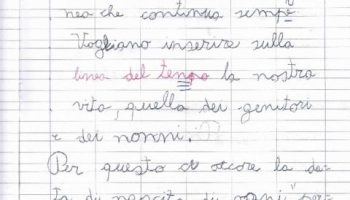 nea che continua sempre
Vogliano inserire sulla
linea del tempo la nostra
vita, quella dei genitori
e dei nonni.
Per questo ci occore la da-
ta di nascita di ogni "per-